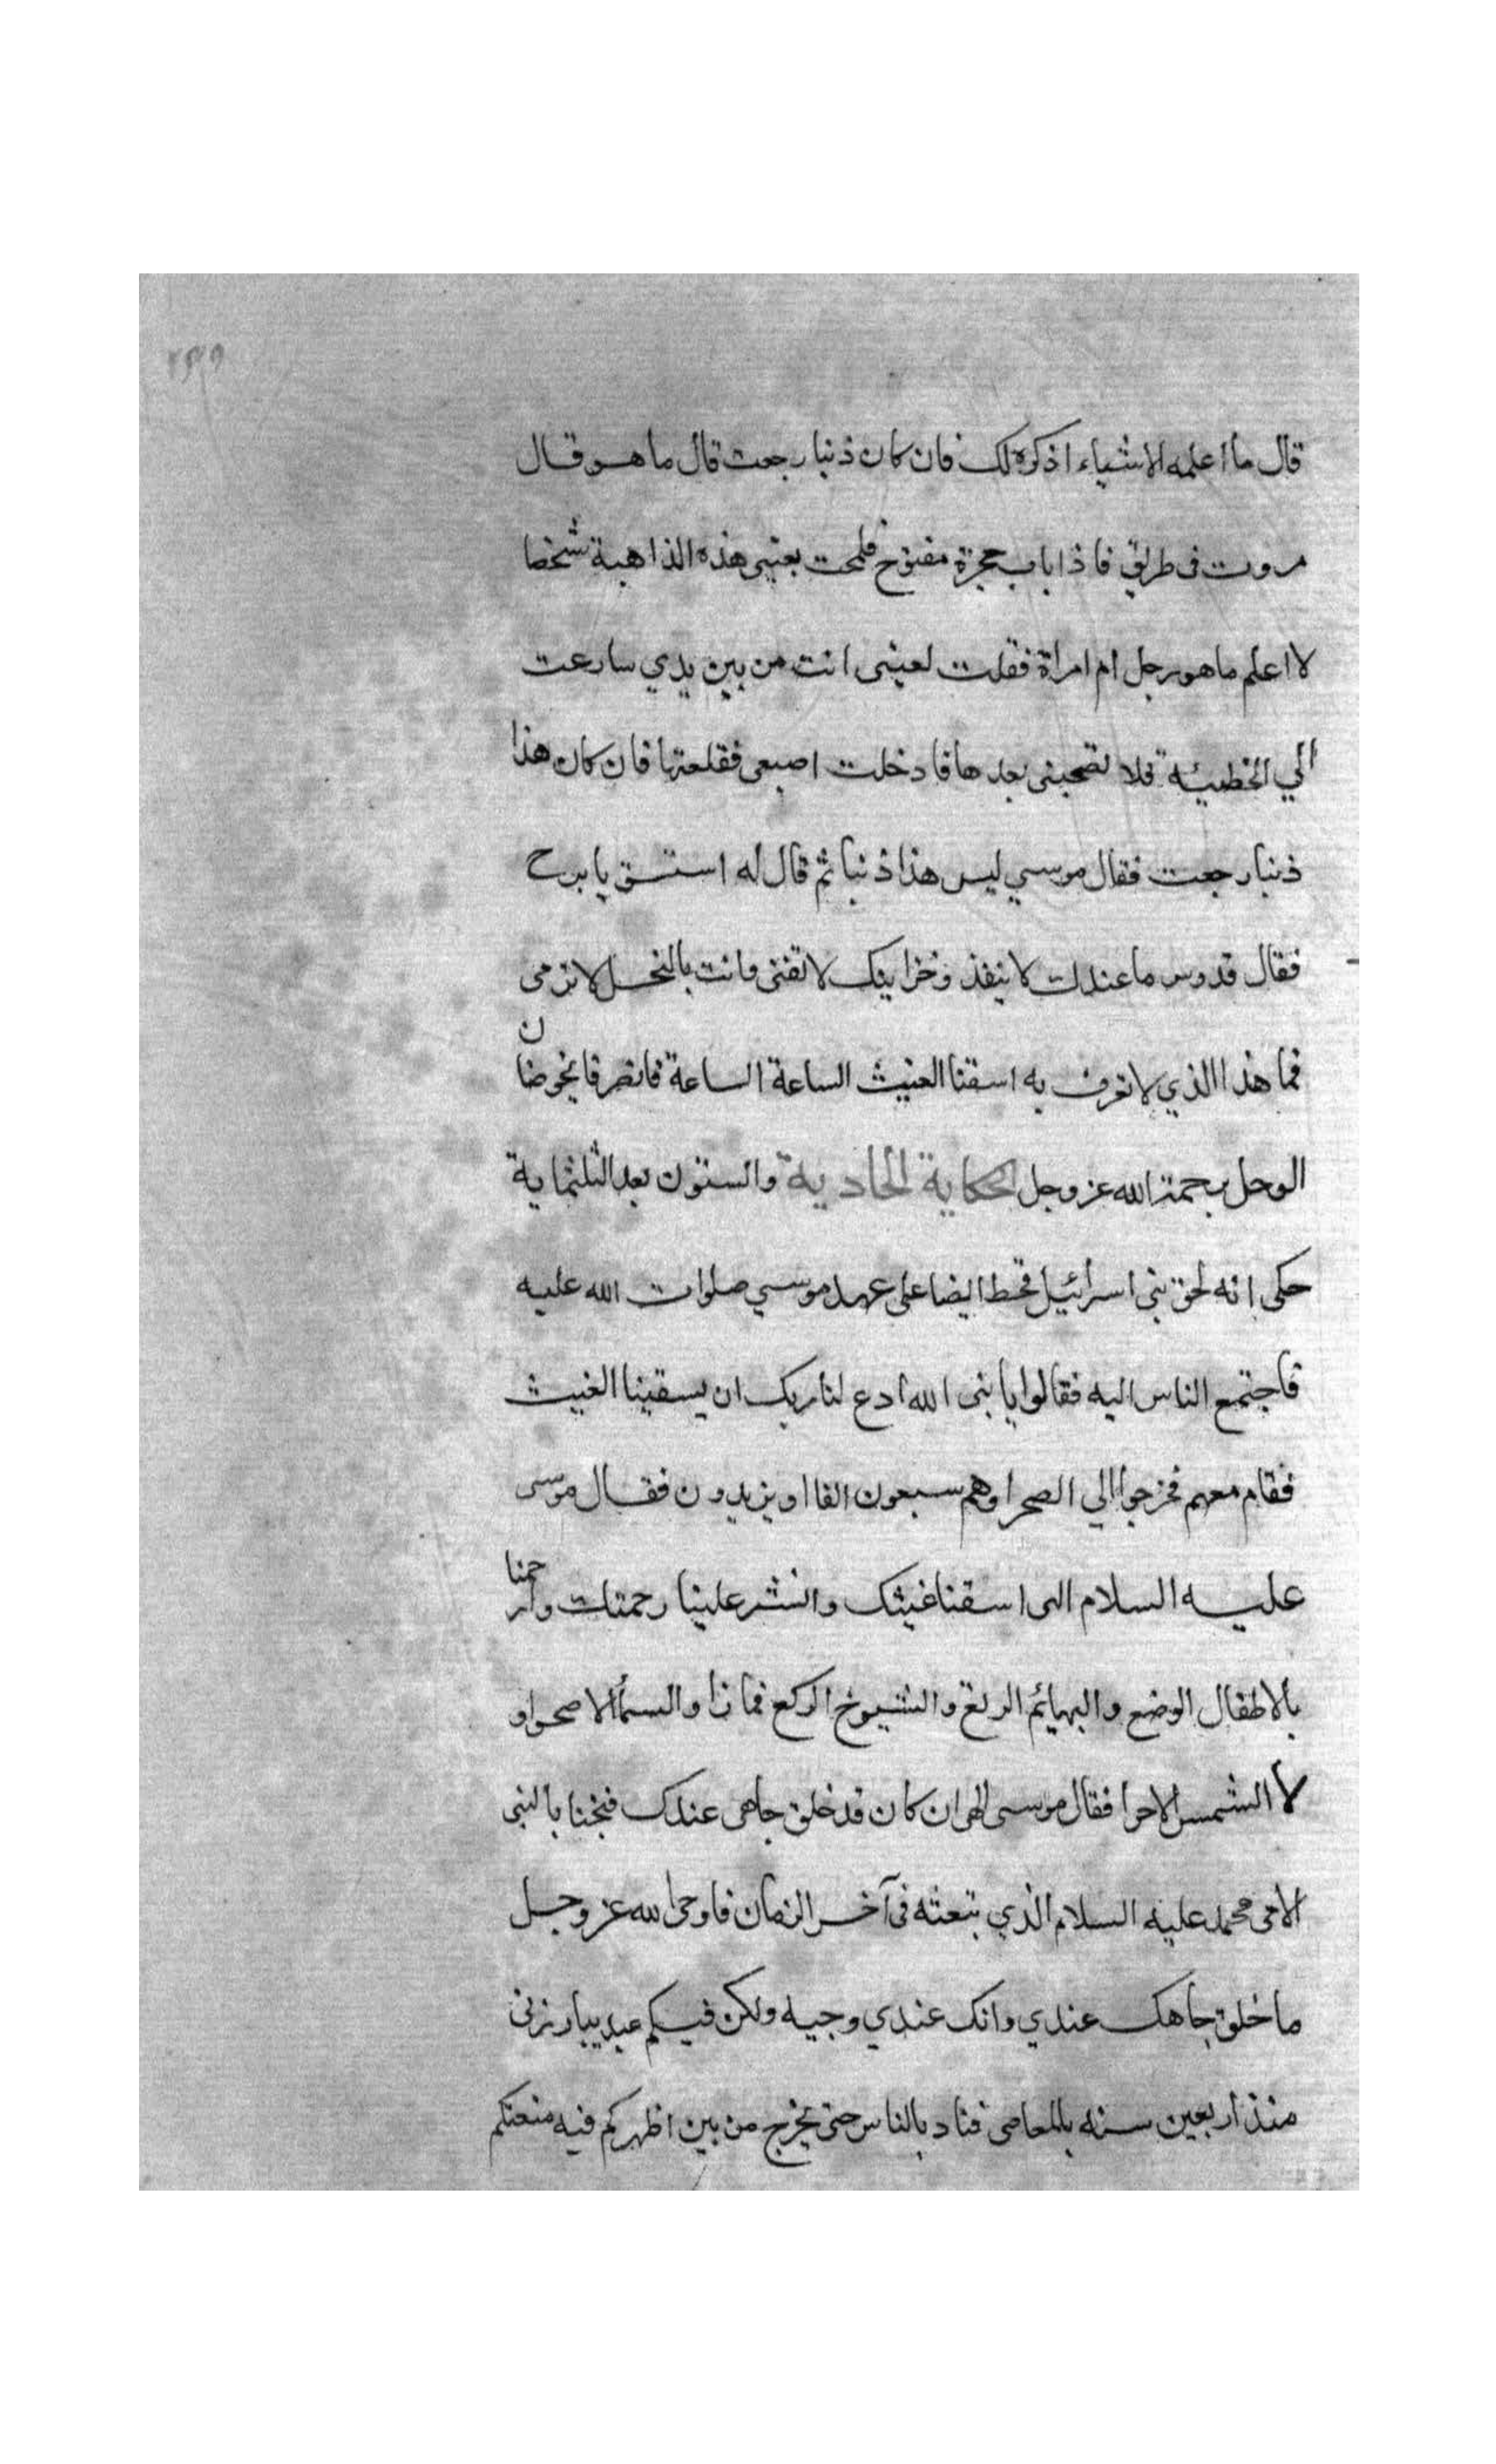 قال ما اعلمه الا شياء اذكره لك فان كان ذنبا رجعت قال ما هو قال
مروت فى طريق فاذا باب حجرة مفتوح فلمحت بعينى هذه الذاهبة شخصا
لا اعلم ما هو رجل ام امراة فقلت لعينى انت من بين يدي سارعت
الي الخطيئه فلا تصحبنى بعدها فادخلت اصبعى فقلعتها فان كان هذا
ذنبا رجعت فقال موسي ليس هذا ذنبا ثم قال له استسق يا برح
فقال قدوس ما عندك لا ينفذ وخزاينك لا تفنى وانت بالنحل لا ترمى
فما هذا الذي لا تعرف به اسقنا الغيث الساعة الساعة فانصرفا يخوضان
الوحل برحمة الله عز وجل الحكاية الحادية والستون بعد الثلثماية
حكى انه لحق بنى اسرائيل قحط ايضا على عهد موسي صلوات الله عليه
فاجتمع الناس اليه فقالوا يا بنى الله ادع لنا ربك ان يسقينا الغيث
فقام معهم فخرجوا الي الصحرا وهم سبعون الفا او يزيدون فقال موسى
عليه السلام الهى اسقنا غيثك وانشر علينا رحمتك وارحمنا
بالاطفال الوضع والبهائم الرتع والشيوخ الركع فما زا والسما الا صحوا و
لا الشمس الا حرا فقال موسى الهى ان كان قد خلق جاهى عندك فبخنا بالنبى
الامى محمد عليه السلام الذي تبعثه فى آخر الزمان فاوحى الله عز وجل
ما خلق جاهك عندي وانك عندي وجيه ولكن فيكم عبد يبارزنى
منذ اربعين سنه بالمعاصى فناد بالناس حتى يخرج من بين اظهركم فيه منعتكم